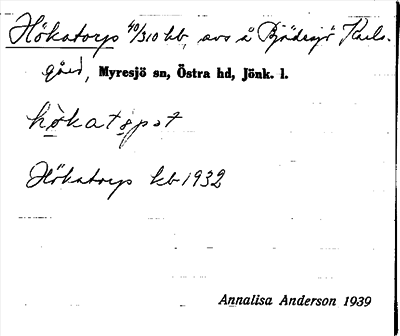 Hökatorp 40/310 kb, avs å Bjädesjö Karls-
gård, Myresjö sn, Östra hd, Jönk. l.
hökatɷpət
Hökatorp kb 1932
Annalisa Anderson 1939